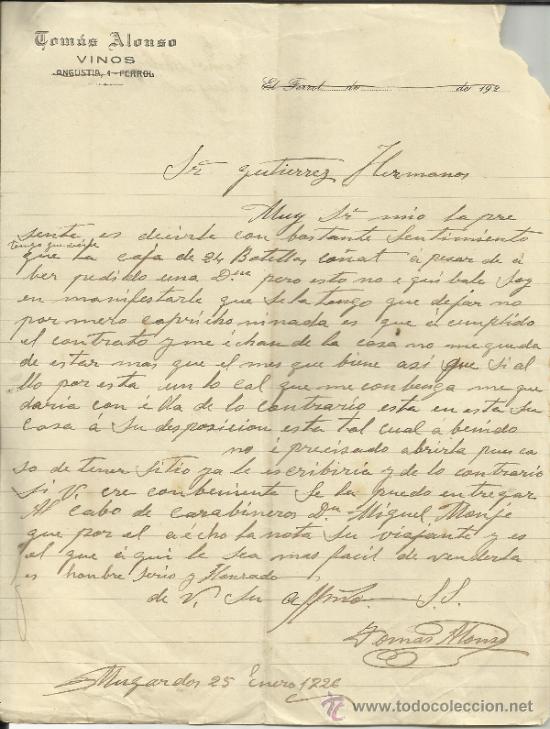 Tomás Alonso
VINOS
ANGUSTIA, 1-FERROL
El Ferrol de de 192
Sr. Gutierrez Hermanos
Muy Sr mio la pre
sente es decirle con bastante sentimiento
tengo que decirle
que la caja de 24 Botellas conat a pesar de á
ber pedido una D.na pero esto no e quibale soy
en manifestarle que se la tengo que dejar no
por mero capricho ni nada es que á cumplido
el contrato y me échan de la casa no me queda
de estar mas que el mes que biene así que si al
llo por esta un lo cal que me conbenga me que
daria con élla de lo contrario esta en esta su
casa a su disposicion esta tal cual a benido
no é precisado abrirla pues ca
so de tener sitio ya le escribiria y de lo contrario
si V. cre conbeniente se la puedo entregar
Al cabo de carabineros Dn Miguel Monje
que por el a echo la nota su viajante y es
el que á qui le sea mas facil de venderla
es hombre serio y Honrado
de V. su affmo S.S.
Tomás Alonso
Mugardos 25 Enero 1926
todocoleccion.net